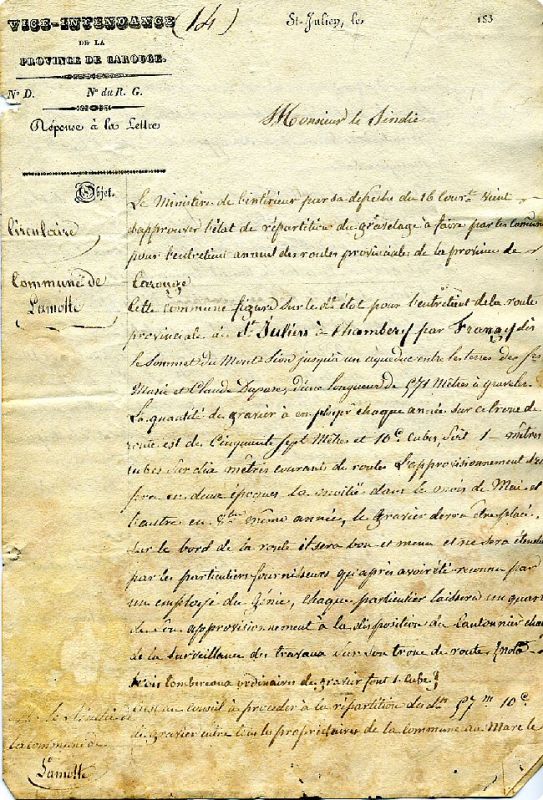 VICE-INTENDANCE (14)
DE LA
PROVINCE DE CAROUGE.
N.º D. N.º du R. G.
Réponse à la Lettre
Objet.
Circulaire
Commune de
Lamotte
St-Julien, le 183
Monsieur le Sindic
Le Ministère de l'intérieur par sa depeche du 16 Cour.t vient
d'approuver l'état de répartition du gravelage à faire par les comunes
pour l'entretient annuel des routes provinciales de la province de
Carouge
Cette commune figure sur le dit état pour l'entretient de la route
provinciale de St Julien à Chambery par Frangy dès
le Sommet du Mont Sion jusqu'à un aqueduc entre les terres des Frs
Marie et Claude d'une longueur de 571 Mètres à graveler
La quantité de gravier à employer chaque année sur ce troue de
route est de Cinquante Sept Mètres et 10 c. cubes, soit 1 mètres
cubes sur dix mètres courants de routes L'approvisionnement
fera en deux époques la moitié dans le mois de Mai et
l'autre en 8bre même année, le gravier devra être placé
sur le bord de la route il sera bon et menu et ne sera étendu
par les particuliers fournisseurs qu'après avoir été reconnu par
un employé du Génie, chaque particulier laissera un quart
de son approvisionnement à la disposition du Cantonnier
de la surveillance des travaux sur son troue de route (nota
trois tombereaux ordinaires de gravier font 1. Cube)
conseil à procéder à la répartition de dits 57 m 10 c.
de gravier entre tous les propriétaires de la commune au Marc le
le Sindic de
la commune de
Lamotte